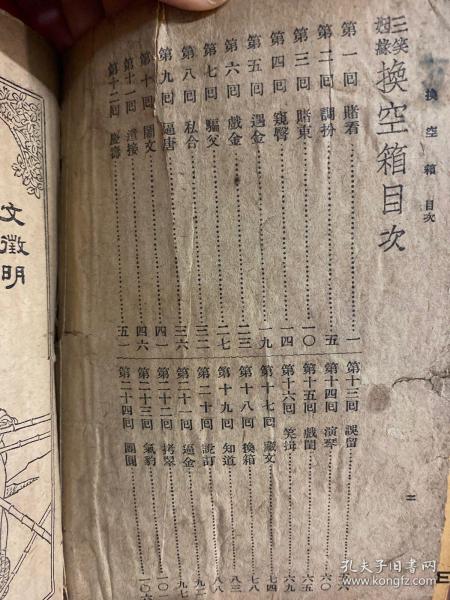 換空箱 目次
三笑姻緣 換空箱目次
第一回 賭看 一
第二回 調扮 五
第三回 賭東 一〇
第四回 窺臀 一四
第五回 遇金 一九
第六回 戲金 二三
第七回 騙父 二七
第八回 私合 三二
第九回 逼唐 三六
第十回 鬧文 四一
第十一回 接 四六
第十二回 慶壽 五一
第十三回 誤留 六
第十四回 演琴 六〇
第十五回 戲閨 六五
第十六回 笑揖 六九
第十七回 藏文 七四
第十八回 換箱 七八
第十九回 知道 八三
第二十回 說訂 八八
第二十一回 逼金 九二
第二十二回 拷翠 九七
第二十三回 氣豹 一〇
第二十四回 團圓 一〇六
二
文徵明
三
孔夫子旧书网